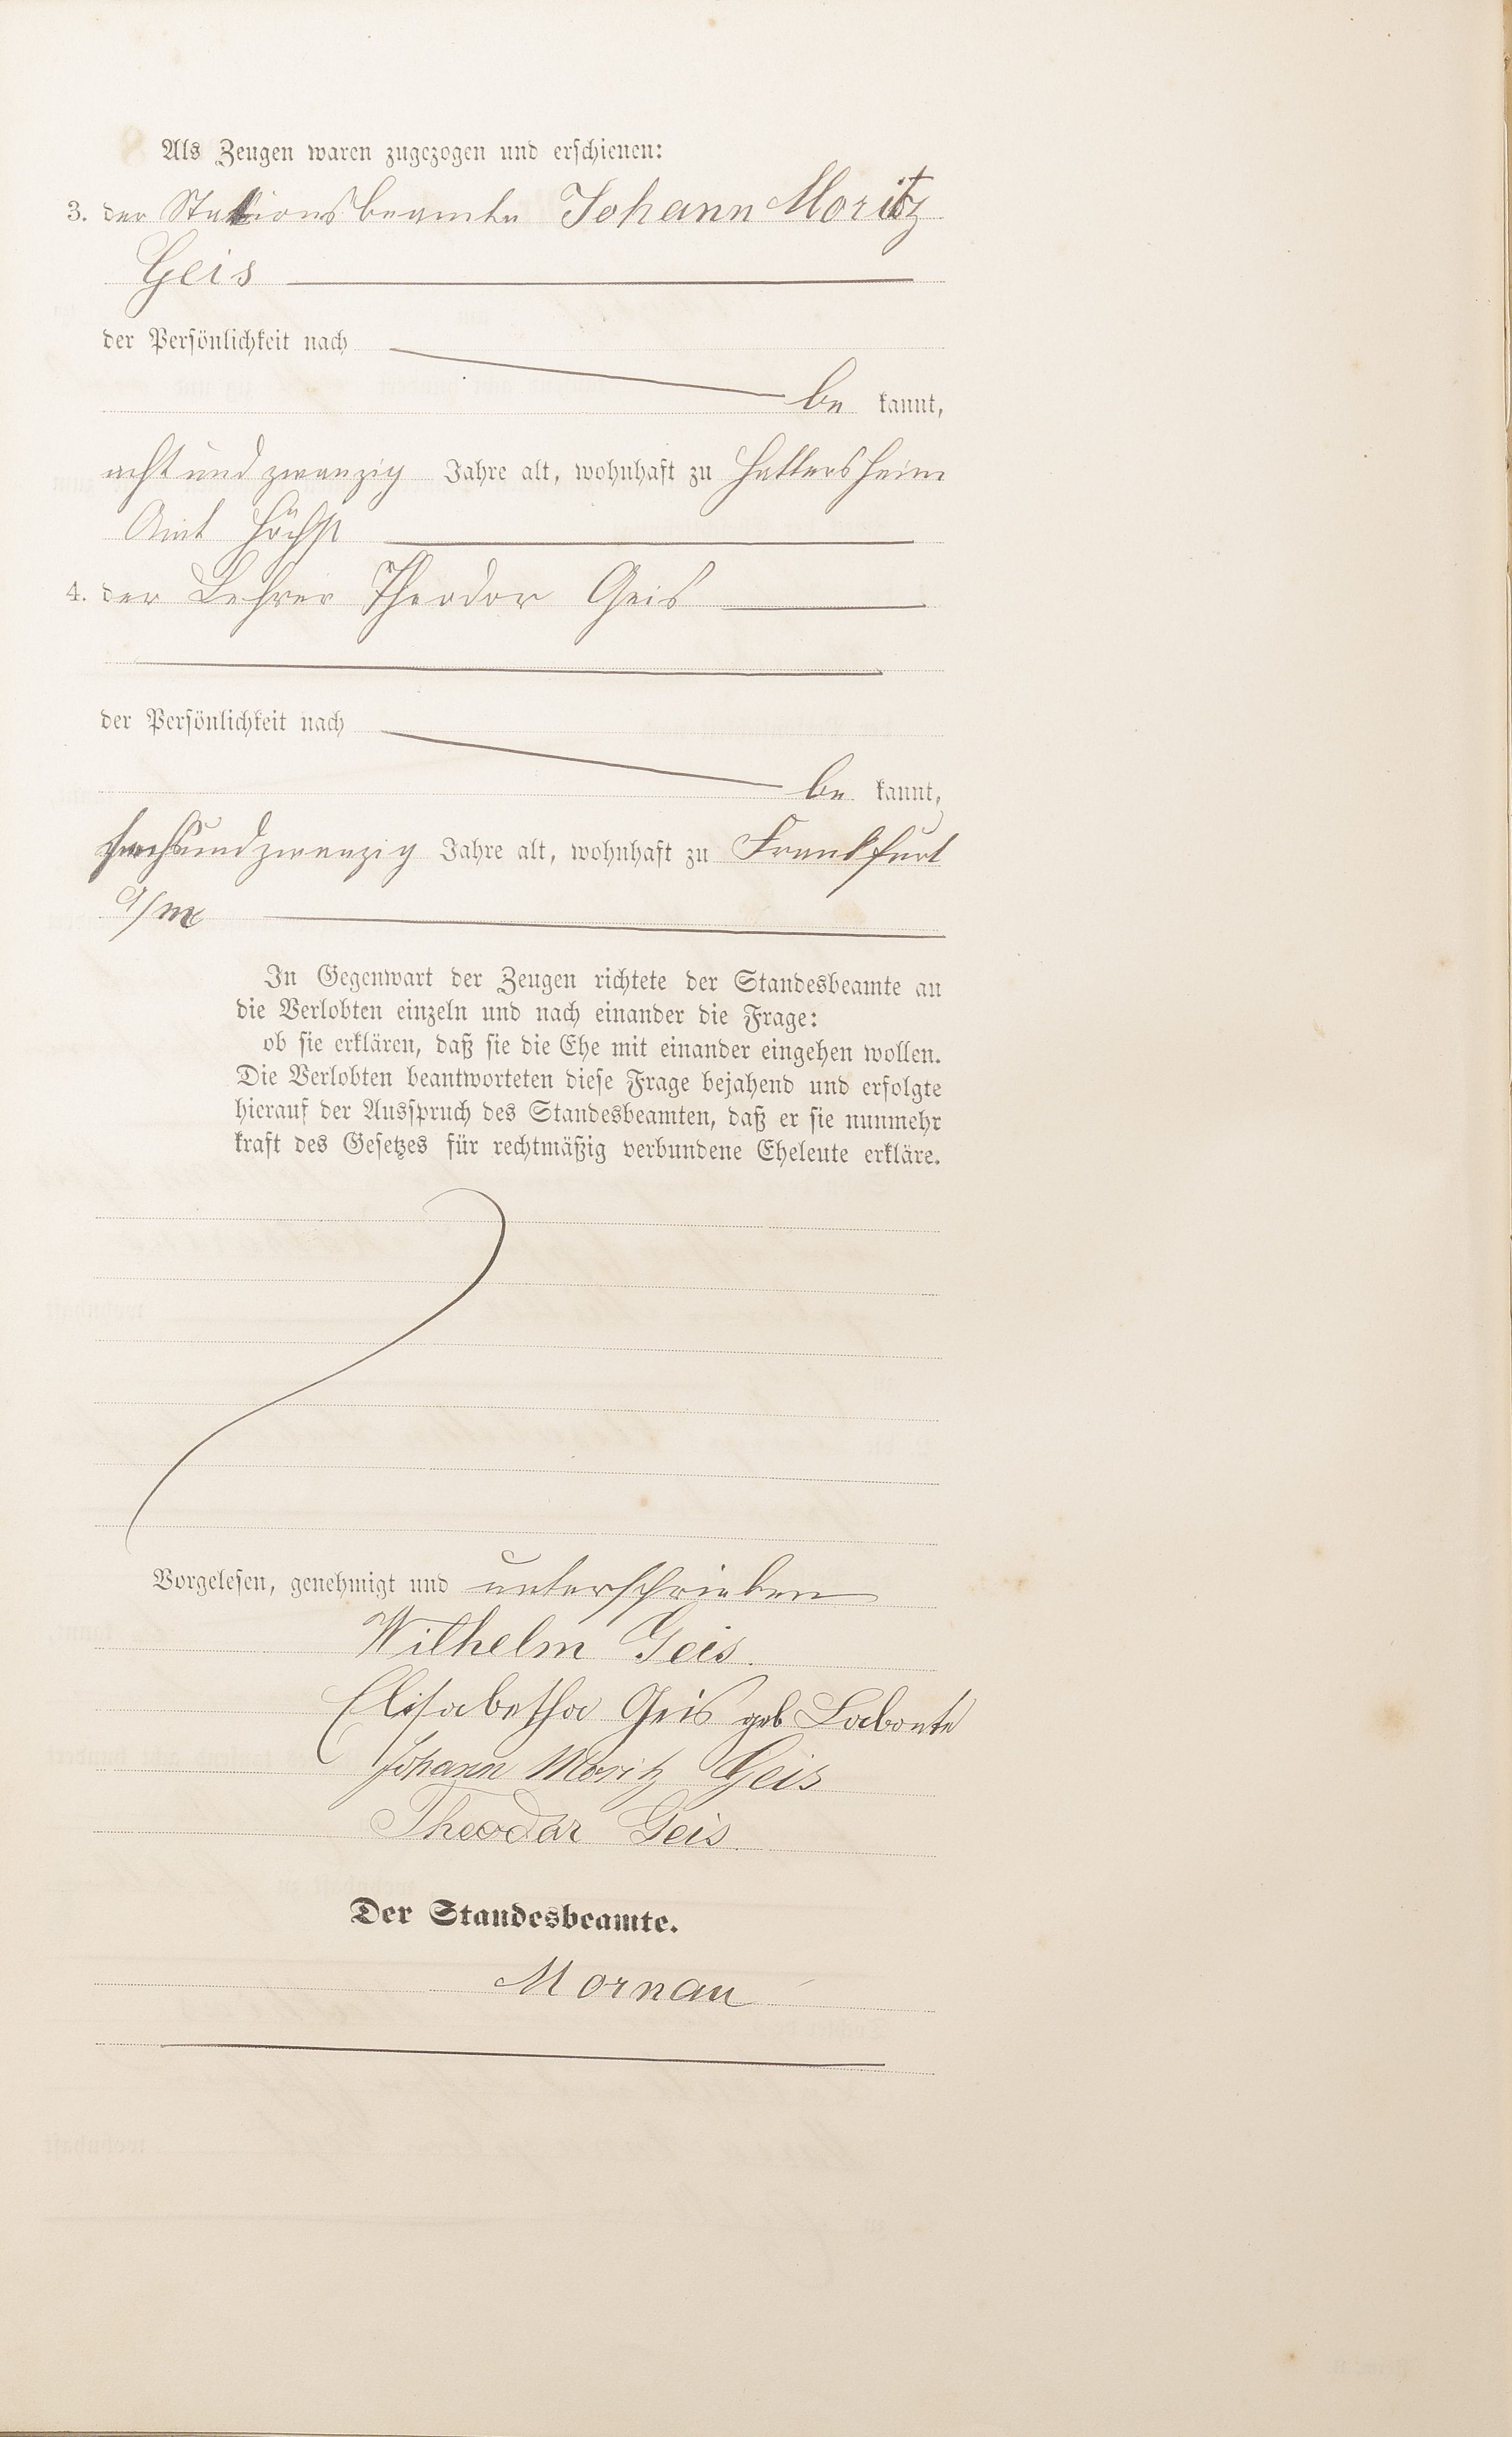 Als Zeugen waren zugezogen und erschienen:
3. der Stationsbeamte Johann Moritz
Geis
der Persönlichkeit nach
be kannt,
acht und zwanzig Jahre alt, wohnhaft zu Hattersheim
Amt Höchst
4. der Lehrer Theodor Geis
der Persönlichkeit nach
be kannt,
sechsundzwanzig Jahre alt, wohnhaft zu Frankfurt
a/m
In Gegenwart der Zeugen richtete der Standesbeamte an
die Verlobten einzeln und nach einander die Frage:
ob sie erklären, daß sie die Ehe mit einander eingehen wollen.
Die Verlobten beantworteten diese Frage bejahend und erfolgte
hierauf der Ausspruch des Standesbeamten, daß er sie nunmehr
kraft des Gesetzes für rechtmäßig verbundene Eheleute erkläre.
Vorgelesen, genehmigt und unterschrieben
Wilhelm Geis.
Elisabetha Geis geb Labonte
Johann Moritz Geis
Theodor Geis.
Der Standesbeamte.
Mornau